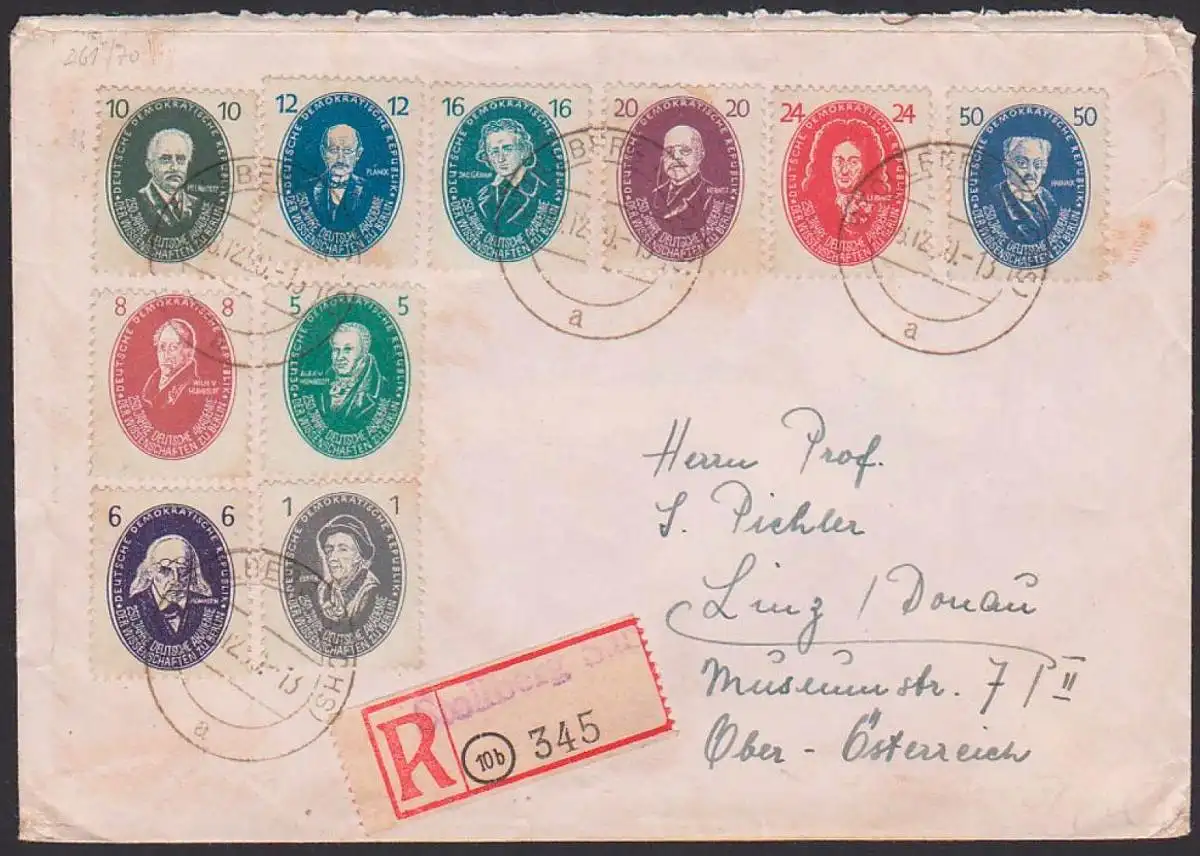 261/70
10 10
DEUTSCHE DEMOKRATISCHE REPUBLIK
250 JAHRE DEUTSCHE AKADEMIE DER WISSENSCHAFTEN ZU BERLIN
12 12
DEUTSCHE DEMOKRATISCHE REPUBLIK
PLANCK
250 JAHRE DEUTSCHE AKADEMIE DER WISSENSCHAFTEN ZU BERLIN
16 16
DEUTSCHE DEMOKRATISCHE REPUBLIK
JAC. GRIMM
250 JAHRE DEUTSCHE AKADEMIE DER WISSENSCHAFTEN ZU BERLIN
20 20
DEUTSCHE DEMOKRATISCHE REPUBLIK
NERNST
250 JAHRE DEUTSCHE AKADEMIE DER WISSENSCHAFTEN ZU BERLIN
24 24
DEUTSCHE DEMOKRATISCHE REPUBLIK
LEIBNIZ
250 JAHRE DEUTSCHE AKADEMIE DER WISSENSCHAFTEN ZU BERLIN
50 50
DEUTSCHE DEMOKRATISCHE REPUBLIK
HARNACK
250 JAHRE DEUTSCHE AKADEMIE DER WISSENSCHAFTEN ZU BERLIN
a
a
8 8
DEUTSCHE DEMOKRATISCHE REPUBLIK
WILH. V.
HUMBOLDT
250 JAHRE DEUTSCHE AKADEMIE DER WISSENSCHAFTEN ZU BERLIN
5 5
DEUTSCHE DEMOKRATISCHE REPUBLIK
ALEX. V.
HUMBOLDT
250 JAHRE DEUTSCHE AKADEMIE DER WISSENSCHAFTEN ZU BERLIN
6 6
DEUTSCHE DEMOKRATISCHE REPUBLIK
MOMMSEN
250 JAHRE DEUTSCHE AKADEMIE DER WISSENSCHAFTEN ZU BERLIN
1 1
DEUTSCHE DEMOKRATISCHE REPUBLIK
250 JAHRE DEUTSCHE AKADEMIE DER WISSENSCHAFTEN ZU BERLIN
(HS)
a
Herrn Prof.
S. Pichler
Linz / Donau
Museumstr. 7 / II
Ober - Österreich
R
10b
345